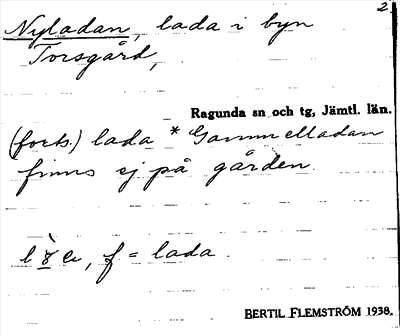 2
Nyladan, lada i byn
Torsgård,
Ragunda sn och tg, Jämtl. län.
(forts.) lada * Gammelladan
finns ej på gården.
f = lada.
BERTIL FLEMSTRÖM 1938.